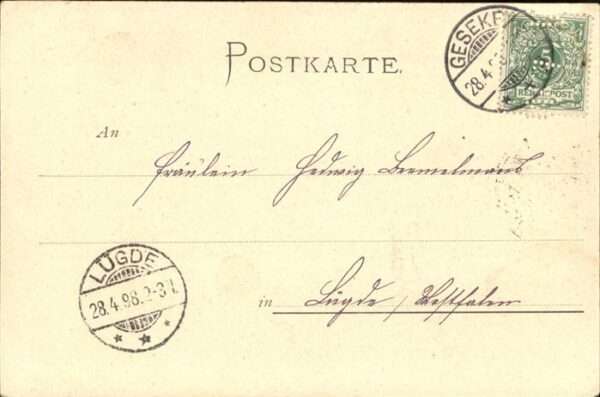 POSTKARTE.
GESEKE
28.4.9
5
REICHSPOST
An
Fräulein Hedwig Bermelmans
LÜGDE
28.4.98.2-3N.
in Lügde / Westfalen